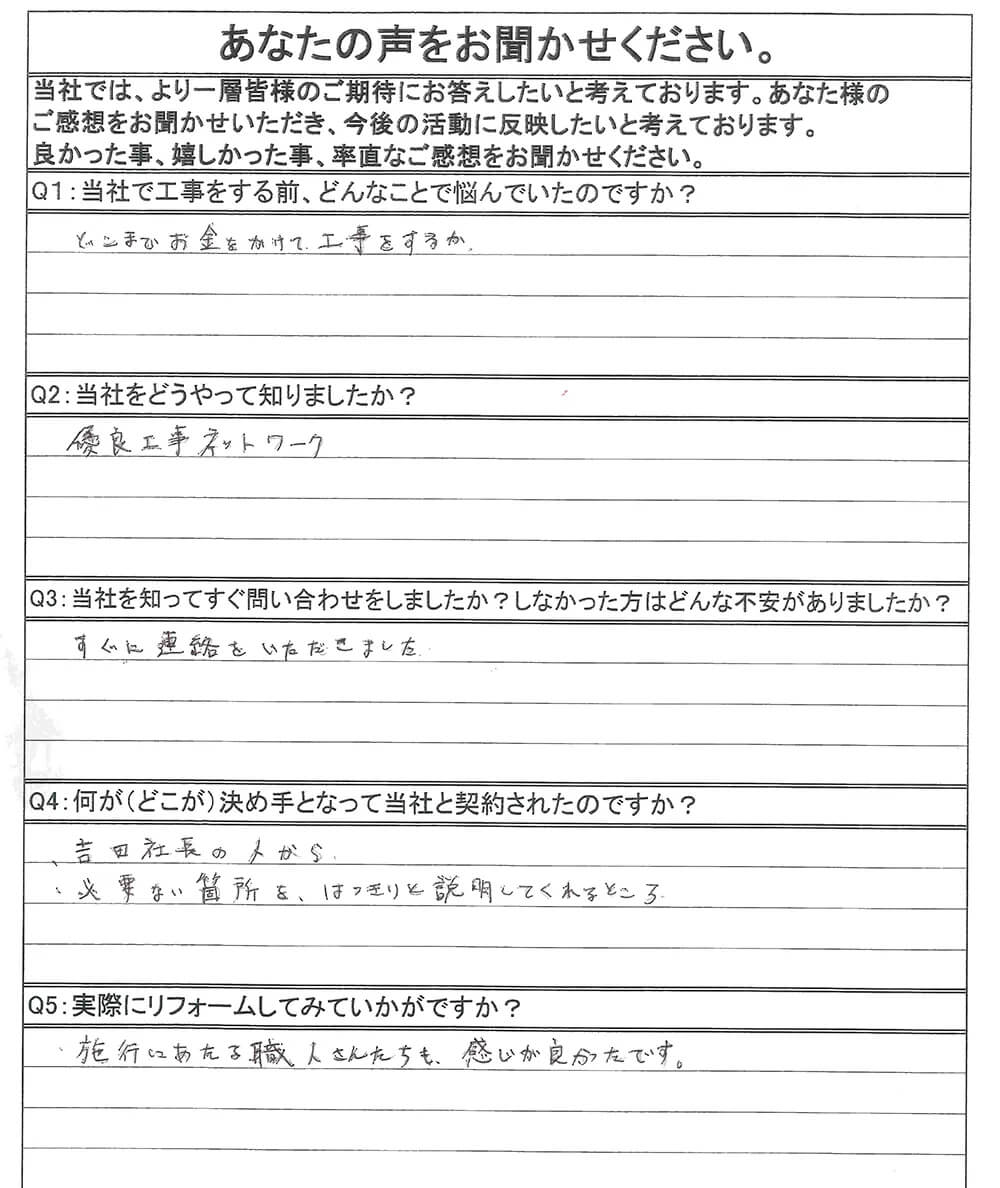 あなたの声をお聞かせください。
当社では、より一層皆様のご期待にお答えしたいと考えております。あなた様の
ご感想をお聞かせいただき、今後の活動に反映したいと考えております。
良かった事、嬉しかった事、率直なご感想をお聞かせください。
Q1：当社で工事をする前、どんなことで悩んでいたのですか？
どこまでお金をかけて工事をするか.
Q2：当社をどうやって知りましたか？
優良工事ネットワーク
Q3：当社を知ってすぐ問い合わせをしましたか？しなかった方はどんな不安がありましたか？
すぐに連絡をいただきました.
Q4：何が（どこが）決め手となって当社と契約されたのですか？
・吉田社長の人がら.
・必要ない箇所を、はっきりと説明してくれるところ.
Q5：実際にリフォームしてみていかがですか？
・施行にあたる職人さんたちも、感じが良かったです。